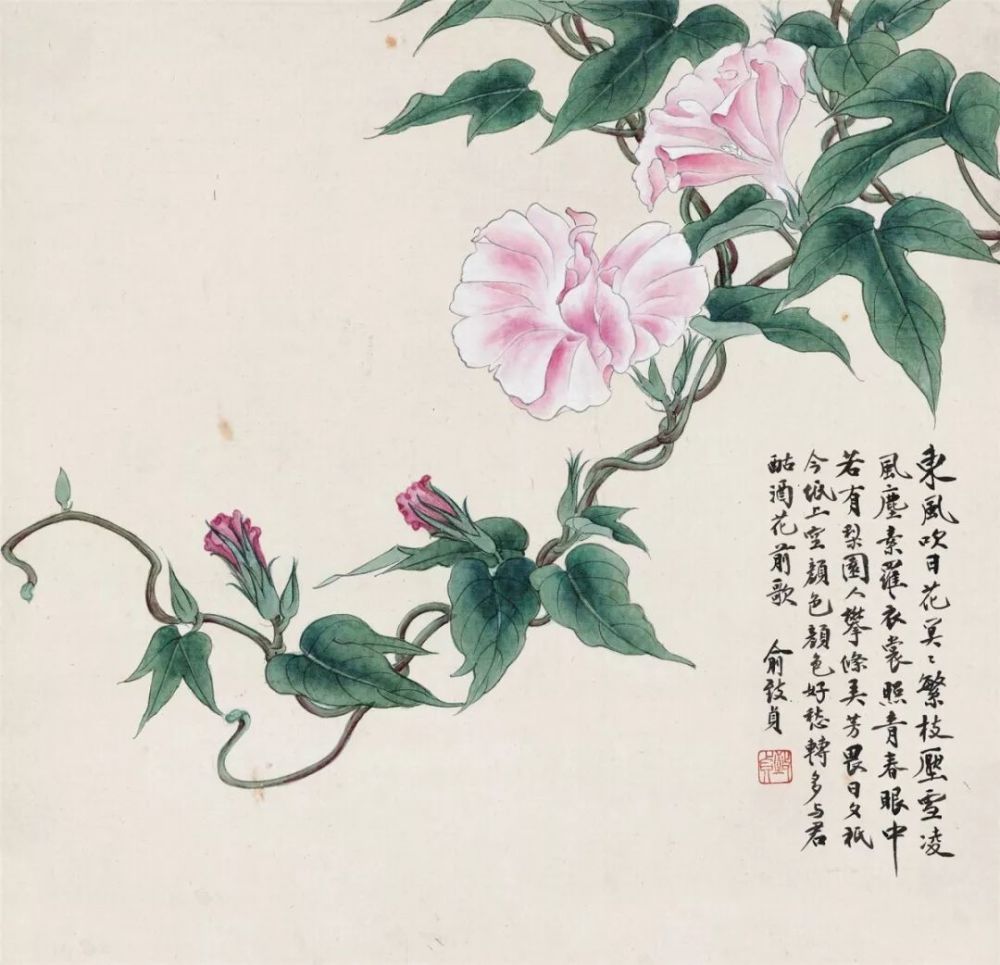 東風吹日花莫〻繁枝壓雪凌
風塵素羅衣裳照青春眼中
若有梨園人攀條弄芳畏日夕祇
今紙上空顏色顏色好愁轉多与君
酤酒花前歌 俞致貞